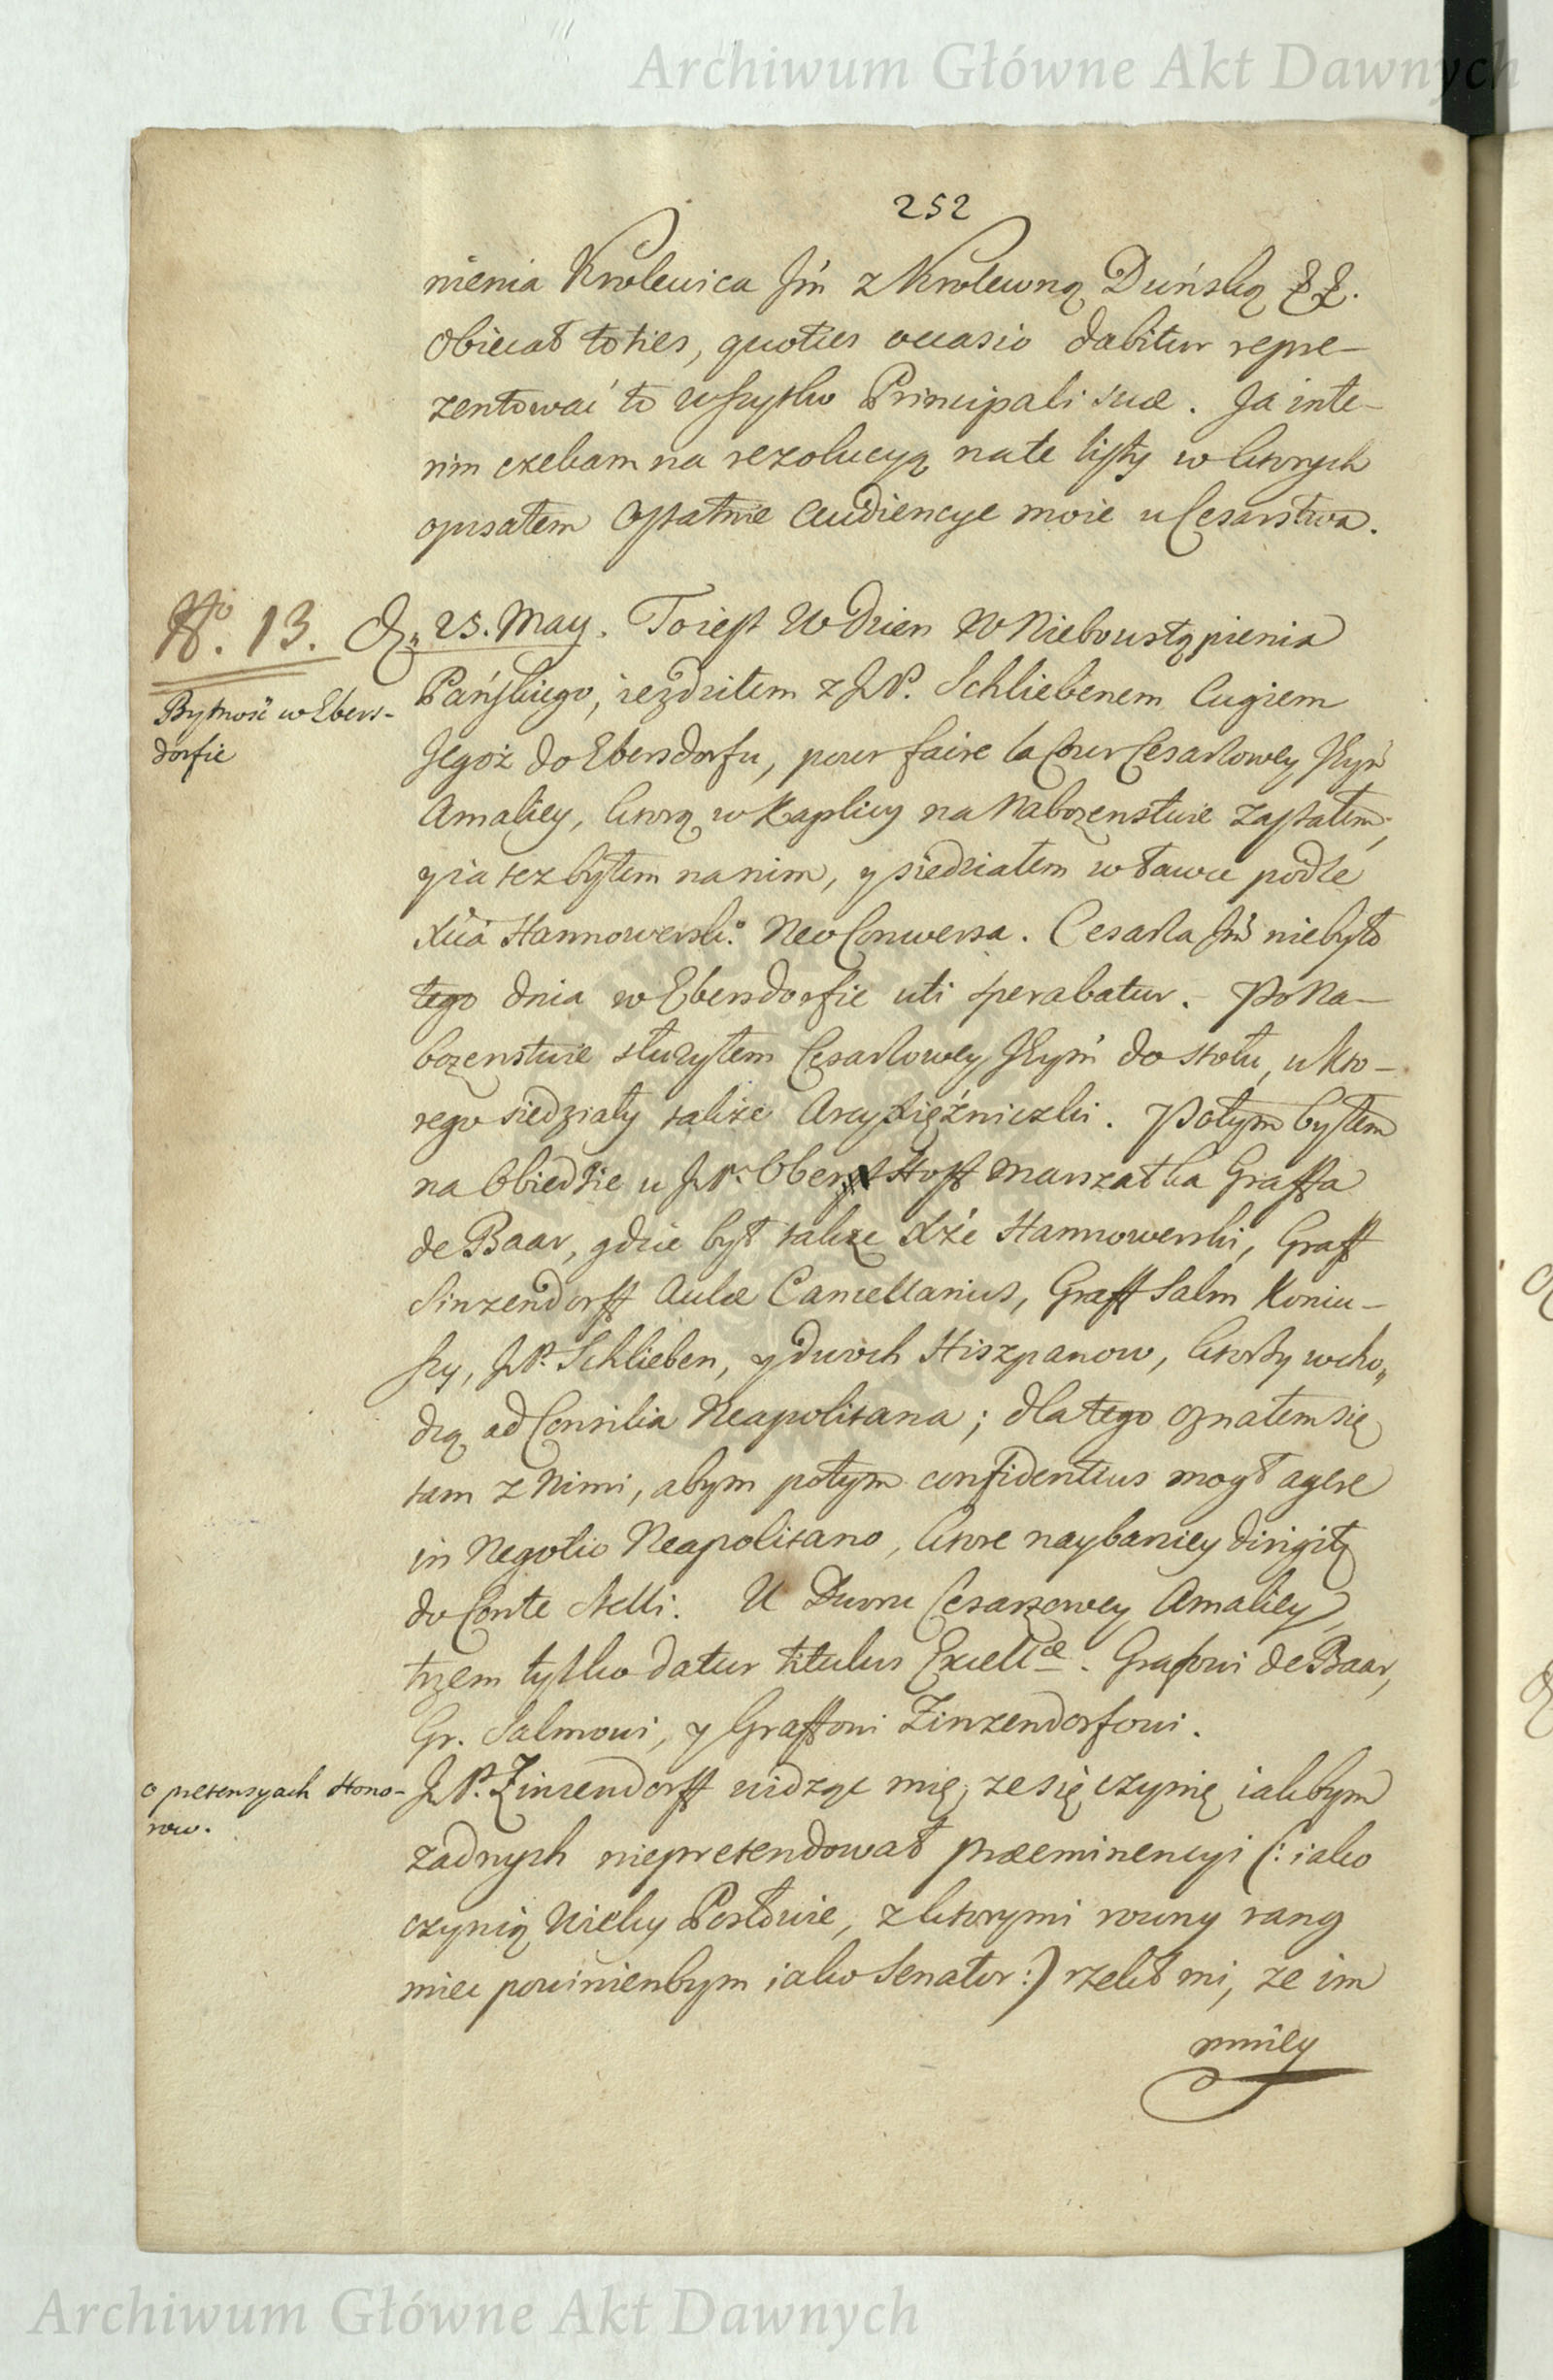 Archiwum Główne Akt Dawnych
252
nienia Krolewica Jm̃ z Krolewną Duńską &&.
Obiecał toties, quoties occasio dabitur repre-
zentować to wszytko Principali suæ. Ja inte-
rim czekam na rezolucyą na te listy w ktorych
opisałem Ostatnie Audiencye moie u Cesarstwa.
No. 13. D. 25. May. To iest W dzien W Niebowstąpienia
Bytność w Ebers-
dorfie
Pańskiego, iezdziłem z JP. Schliebenem Cugiem
Jegoż do Ebersdorfu, pour faire la Cour Cesarzowey Jeym̃
Amaliey, ktorą w Kaplicy na Nabozenstwie zastałem;
y ia tez byłem na nim, y siedziałem w ławce podle
Xcia Hannowersk.o Neo Conwersa. Cesarza Jm̃ niebyło
tego dnia w Ebersdorfie uti sperabatur. Po Na-
bozenstwie słuzyłem Cesarzowey Jeym̃ do stołu, u kto-
rego siedziały takze Arcyxiężniczki. Potym byłem
na Obiedzie u JP. Ober Hoff Marszałka Graffa
de Baar, gdzie był takze Xże Hannowerski, Graff
Sinzendorff Aulæ Cancellarius, Graff Salm Koniu-
szy, JP. Schlieben, y dwoch Hiszpanow, ktorzy wcho-
dzą ad Consilia Neapolitana; dlatego oznałem się
tam z Nimi, abym potym confidentius mogł agere
in Negotio Neapolitano, ktore naybarziey dirigit
do Conte Nelli. U Dworu Cesarzowey Amaliey,
trzem tylko datur titulus Excellæ. Grafowi de Baar,
Gr. Salmowi, y Graffowi Zinzendorfowi.
o pretensyach Hono-
row.
JP. Zinzendorff widząc mię, ze się czynię iakbym
zadnych niepretendował præeminencyi (: iako
czynią Wielcy Posłowie, z ktorymi rowny rang
miec powinienbym iako Senator :) rzekł mi, ze im
mniey
Archiwum Główne Akt Dawnych